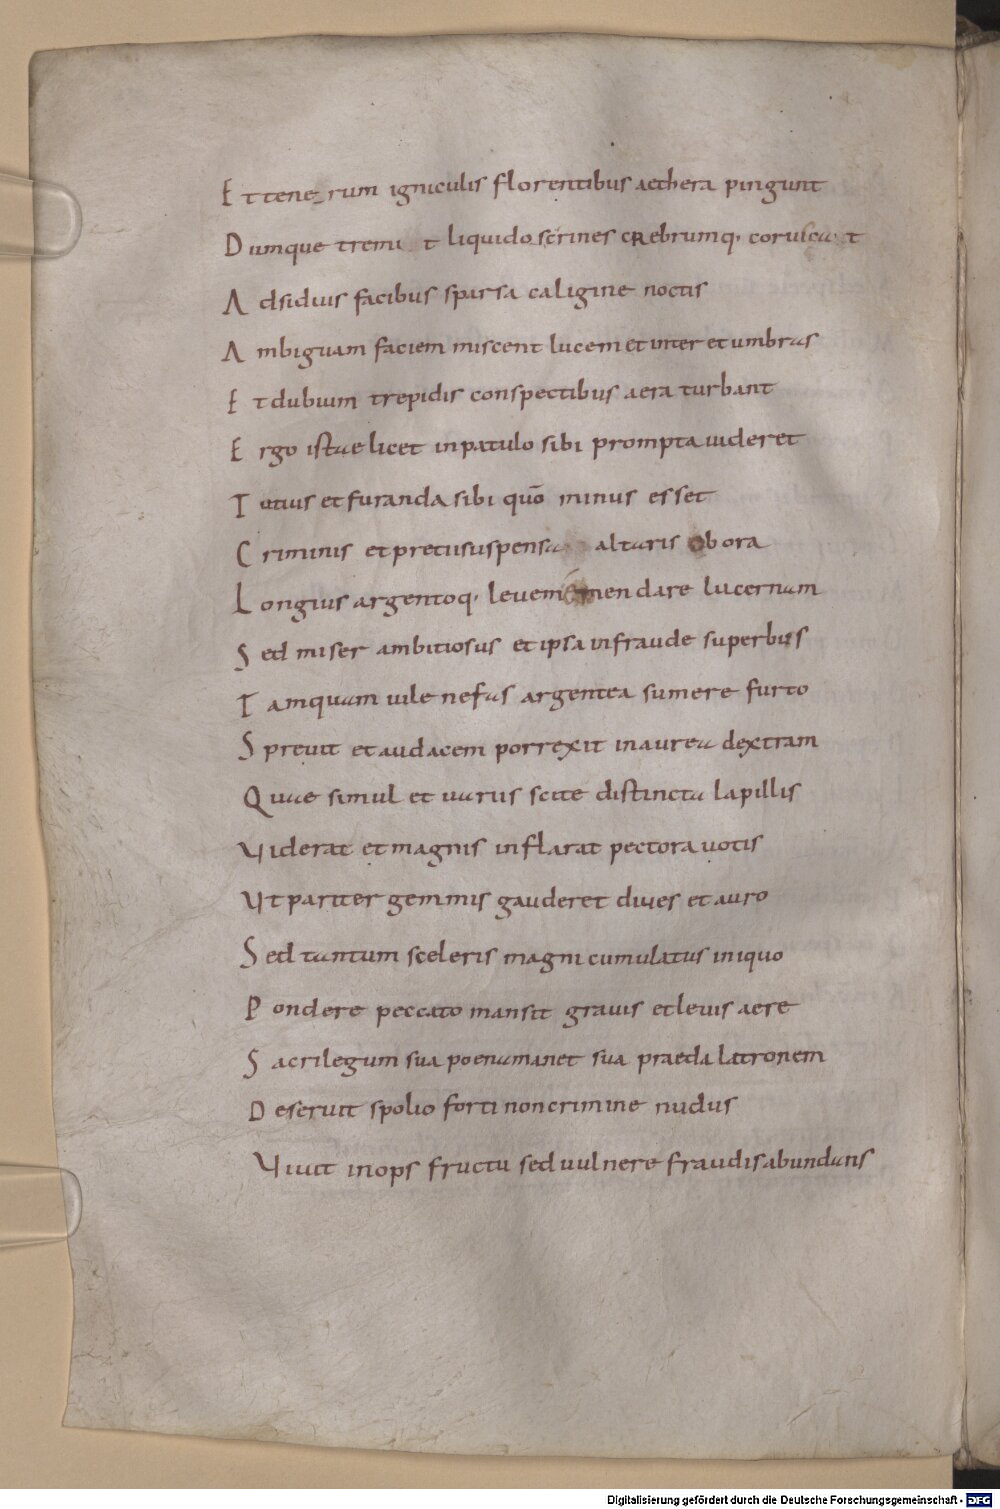 Et tene rum igniculis florentibus aethera pingunt
Dumque tremu t liquidos crines crebrumq; coruscant
Adsiduis facibus sparsa caligine noctis
Ambiguam faciem miscent lucem et inter et umbras
Et dubium trepidis conspectibus aera turbant
Ergo istae licet in patulo sibi prompta uideret
Totius et furanda sibi quō minus esset
Criminis et pretii suspensa altaris obora
Longius argentoq; leuem emendare lucernam
Sed miser ambitiosus et ipsa in fraude superbus
Tamquam uile nefas argentea sumere furto
Spreuit et audacem porrexit in aurea dextram
Quae simul et uariis scite distincta lapillis
Uiderat et magnis inflarat pectora uotis
Ut pariter gemmis gauderet diues et auro
Sed tantum sceleris magni cumulatus iniquo
Pondere peccato mansit grauis et leuis aere
Sacrilegum sua poena manet sua praeda latronem
Deseruit spolio forti non crimine nudus
Uiuit inops fructu sed uulnere fraudis abundans
Digitalisierung gefördert durch die Deutsche Forschungsgemeinschaft - DFG